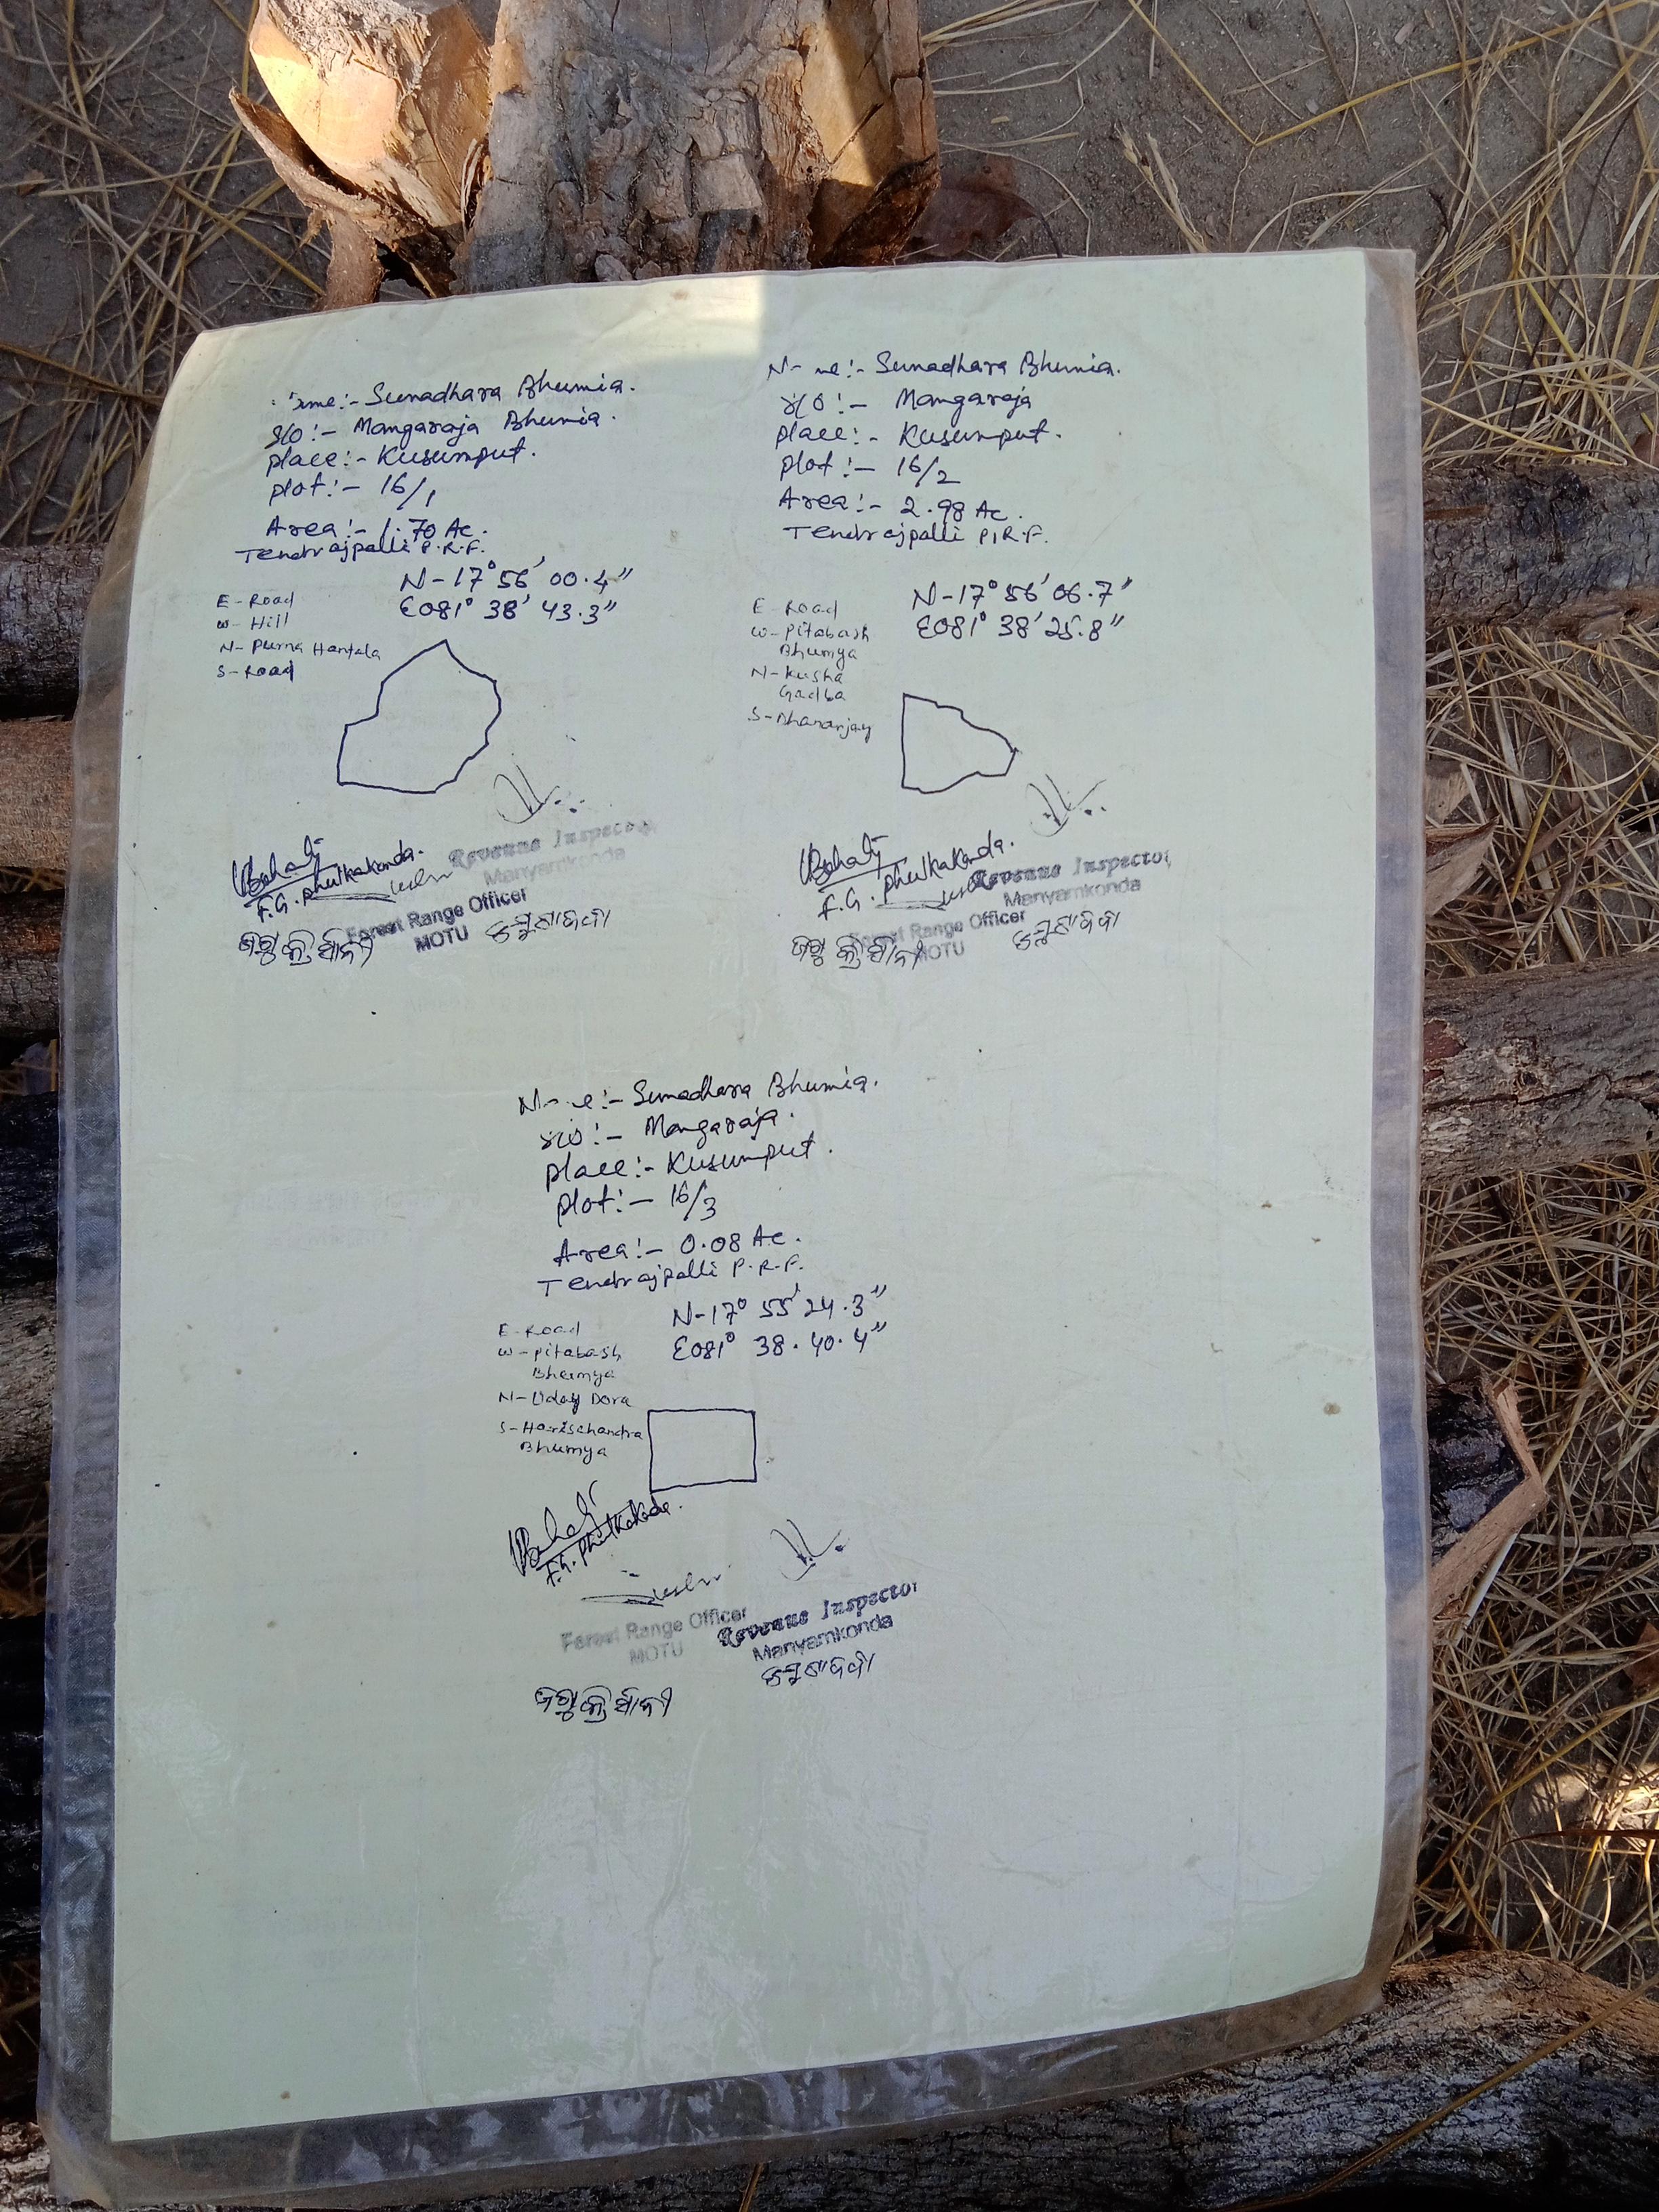 Name:- Sunadhara Bhumia.
S/O:- Mangaraja Bhumia.
place:- Kusumput.
plot:- 16/1
Area:- 1.70 Ac.
Tendrajpalli P.R.F.
N-17° 56' 00.4"
E081° 38' 43.3"
E-Road
W-Hill
N-Purna Hantala
S-Road
F.G. Phulkakonda.
Revenue Inspector
Manyamkonda
Forest Range Officer
MOTU
Sunadhara Bhumia.
S/O:- Mangaraja
place:- Kusumput.
plot:- 16/2
Area:- 2.98 Ac.
Tendrajpalli P.R.F.
N-17° 56' 06.7"
E081° 38' 25.8"
E-Road
W-Pitabash
Bhumya
N-Kusha
Gadba
S-Dhananjay
F.G. Phulkakonda.
Revenue Inspector
Manyamkonda
Forest Range Officer
MOTU
Sunadhara Bhumia.
S/O:- Mangaraja.
place:- Kusumput.
plot:- 16/3
Area:- 0.08 Ac.
Tendrajpalli P.R.F.
N-17° 55' 24.3"
E081° 38. 40.4"
E-Road
W-Pitabash
Bhumya
N-Uday Dora
S-Harischandra
Bhumya
F.G.
Forest Range Officer
MOTU
Revenue Inspector
Manyamkonda